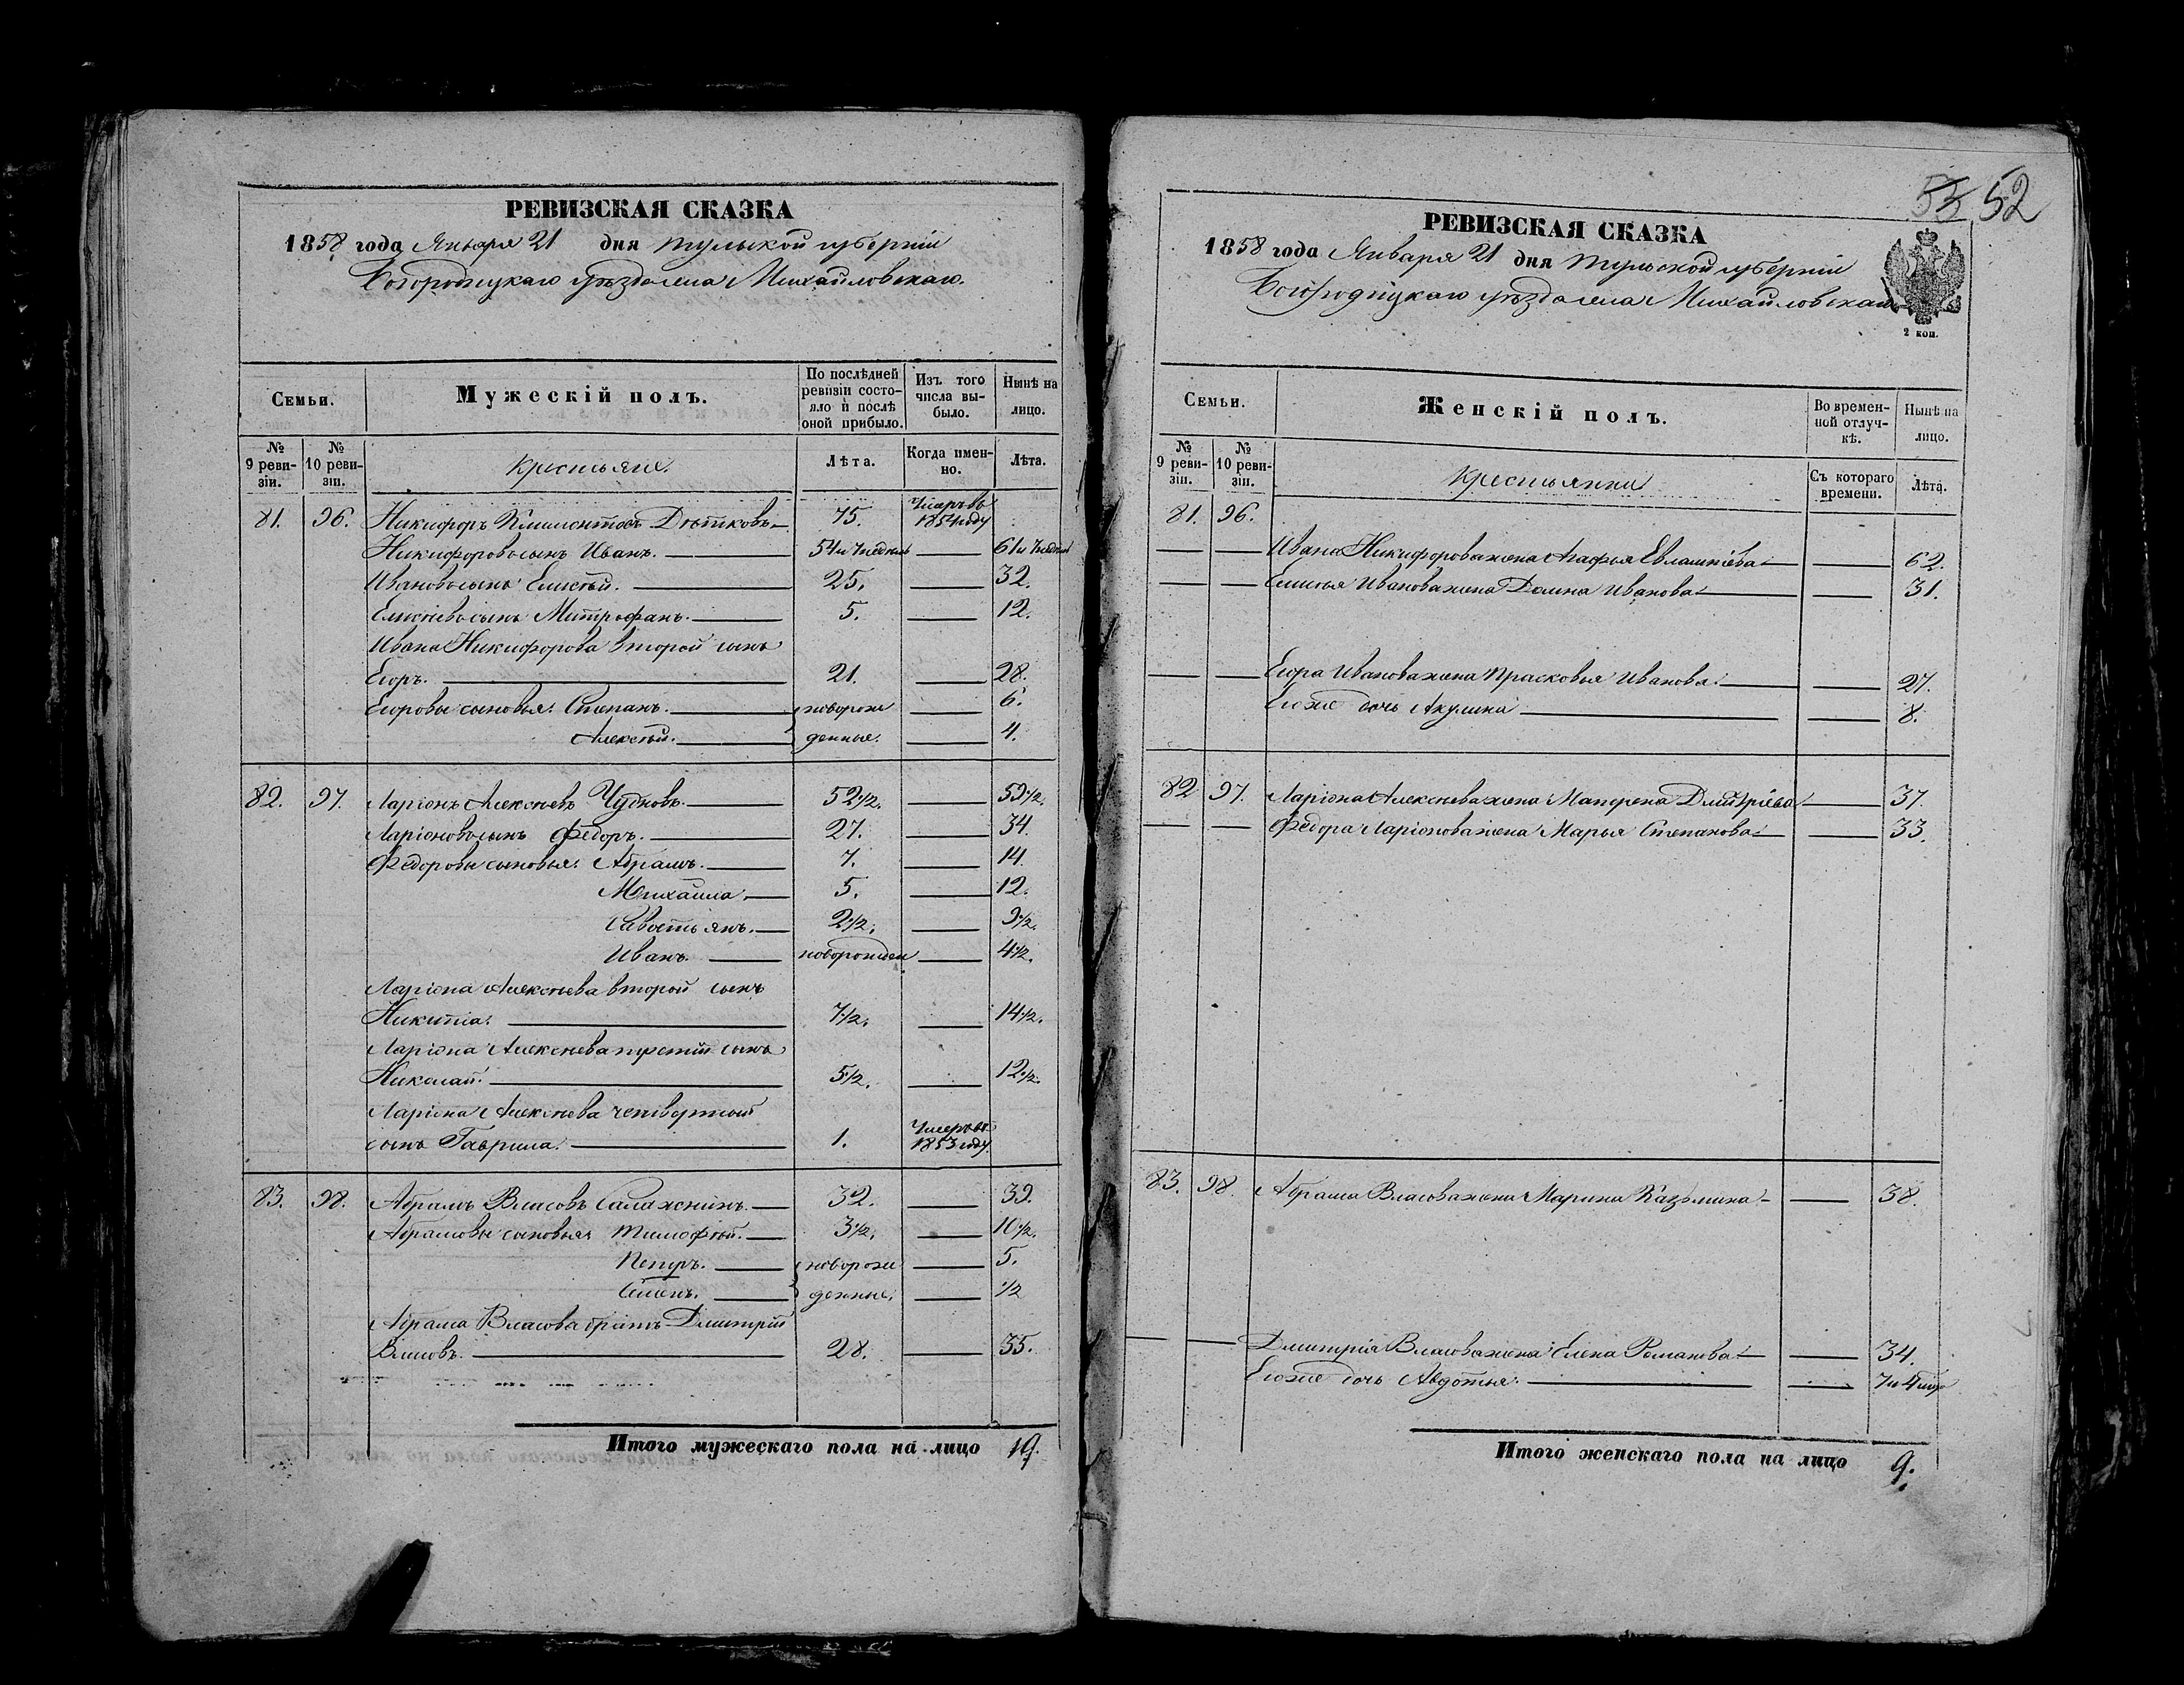 РЕВИЗСКАЯ СКАЗКА
1858 года Января 21 дня Тульской губерніи
Богородицкаго уѣзда села Михайловскаго.
Семьи.
Мужескій полъ.
По послѣдней ревизіи состояло и послѣ оной прибыло.
Изъ того числа выбыло.
Нынѣ на лицо.
№ 9 ревизіи.
№ 10 ревизіи.
Крестьяне.
Лѣта.
Когда именно.
Лѣта.
81. 96. Никифоръ Климентовъ 75. Умеръ въ 1854 году
Никифоровъ сынъ Иванъ. 54 и 7 недель 61 и 7 недель
Ивановъ сынъ Елисѣй. 25. 32.
Елисѣевъ сынъ Митрофанъ. 5. 12.
Ивана Никифорова второй сынъ
Егоръ. 21. 28.
Егоровы сыновья: Степанъ. новорож 6.
Алексѣй. денные. 4.
82. 97. Ларіонъ Алексѣевъ Чудновъ. 52½. 59½.
Ларіоновъ сынъ Федоръ. 27. 34.
Федоровы сыновья: Абрамъ. 7. 14.
Михайла. 5. 12.
Савостьянъ. 2½. 9½.
Иванъ. новорожден 4½.
Ларіона Алексѣева второй сынъ
Никитіа. 7½. 14½.
Ларіона Алексѣева третій сынъ
Николай. 5½. 12½.
Ларіона Алексѣева четвертый
сынъ Гаврила. 1. Умеръ въ 1853 году.
83. 98. Абрамъ Власовъ 32. 39.
Абрамовы сыновья Тимофѣй. 3½. 10½.
Петръ. новорож 5.
Семенъ. денные. ½
Абрама Власова братъ Дмитрій
Власовъ. 28. 35.
Итого мужескаго пола на лицо 19.
53 52
РЕВИЗСКАЯ СКАЗКА
1858 года Января 21 дня Тульской губерніи
Богородицкаго уѣзда села Михайловскаго
2 коп.
Семьи.
Женскій полъ.
Во временной отлучкѣ.
Нынѣ на лицо.
№ 9 ревизіи.
№ 10 ревизіи.
Крестьянки
Съ котораго времени.
Лѣта.
81. 96.
Ивана Никифорова жена Агафья 62.
Елисѣя Иванова жена Домна Иванова 31.
Егора Иванова жена Прасковья Иванова. 27.
Егоже дочь Акулина 8.
82 97. Ларіона Алексѣева жена Матрена Дмитріева 37.
Федора Ларіонова жена Марья Степанова 33.
83. 98. Абрама Власова жена Марина Казьмина 38.
Дмитрія Власова жена Елена Романова 34.
Егоже дочь Авдотья. 7 и 4 мѣс
Итого женскаго пола на лицо 9.